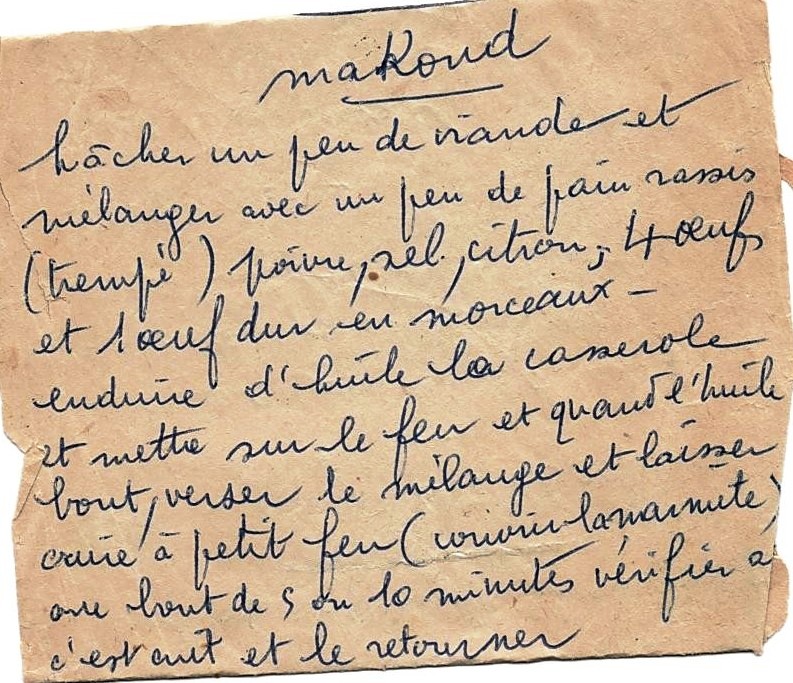 maKoud
hâcher un peu de viande et
mélanger avec un peu de pain rassis
(trempé) poivre, sel, citron, 4 œufs
et 1 œuf dur en morceaux -
enduire d'huile la casserole
et mettre sur le feu et quand l'huile
bout, verser le mélange et laisser
cuire à petit feu (couvrir la marmite)
au bout de 5 ou 10 minutes vérifier
c'est cuit et le retourner